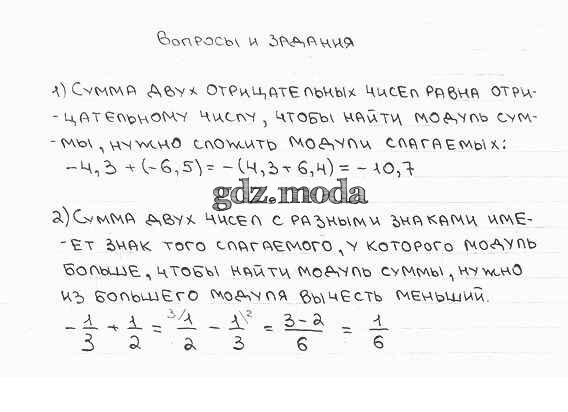 Вопросы и задания
1) Сумма двух отрицательных чисел равна отри-
-цательному числу, чтобы найти модуль сум-
-мы, нужно сложить модули слагаемых:
-4,3 + (-6,5) = -(4,3 + 6,4) = -10,7
gdz.moda
2) Сумма двух чисел с разными знаками име-
-ет знак того слагаемого, у которого модуль
больше, чтобы найти модуль суммы, нужно
из большего модуля вычесть меньший.
-1/3 + 1/2 = 3/ 1/2 - 1/3 \2 = 3-2/6 = 1/6